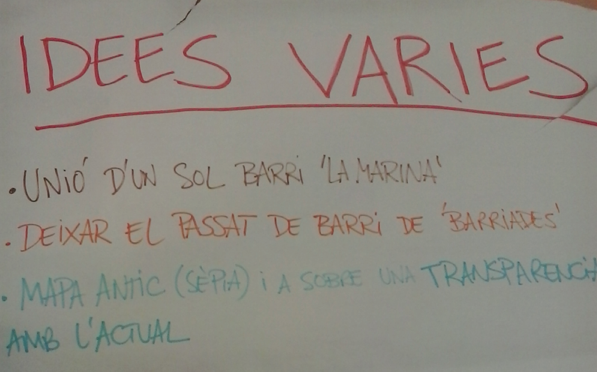 IDEES VARIES
• UNIÓ D'UN SOL BARRI 'LA MARINA'
• DEIXAR EL PASSAT DE BARRI DE 'BARRIADES'
• MAPA ANTIC (SÈPIA) i A SOBRE UNA TRANSPARENCIA
AMB L'ACTUAL